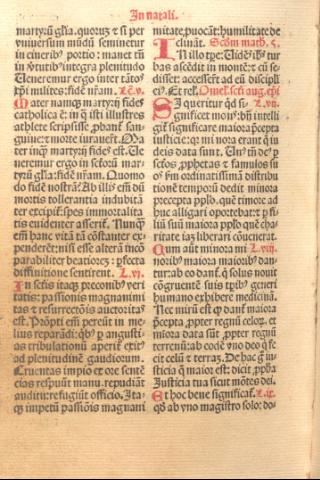 In natali.
martyrũ glia. quorũ ⁊ si per
vniuersum mũdũ seminetur
in cinerib⁹ portio: manet tñ
in ꝟtutib⁹ integra plenitudo
Ueneremur ergo inter tátos
xp̃i milites: fidẽ nr̃am. Le. v.
Mater namq; martyrij fides
catholica ẽ: in q̃ isti illustres
athlete
sanguine: ⁊ morte iurauert.
ter inq̃ martyrij fides est. Ue
neremur ergo in scõrũ mar-
tyrũ glia: fidẽ nr̃am. Quomo
do fidẽ nostrã? Ab illis em̃ dũ
mortis tollerantia indubitã
ter excipit: spes immortalita
tis euidenter asserit. Nunq̃
em̃ hanc vitã tã cõstanter ex-
penderẽt: nisi esse alterã incõ
parabiliter beatiorẽ: pfecta
diffinitione sentirent. L. vj.
In señis itaq; preconib⁹ veri
tatis: passionis magnanimi
tas ⁊ resurrectiõis auctoritas
est. Proptr̃ em̃ pereũt in me
lius reparãdi: qb⁹ p angusti-
as tribulationũ aperit exit⁹
ad plenitudinẽ gaudiorum.
Cruentas impio ex ore sentẽ
cias respuũt manu: repudiãt
auditu: refugiũt officio. Ita-
q; impetũ passiõis magnani
mitate, puocãt: humilitate de
clinãt. Scõm math. 5.
IN illo tp̃e: Uidẽs ihs̃ tur
bas ascẽdit in montẽ: ⁊ cũ se-
disset: accessert̃ ad eũ discipli
ei⁹. Et rel̃. Omel. sc̃i aug. ep̃i
SI queritur qd̃ si- L. vij.
gnificet mons: bñ intelli
git̃ significare maiora p̃cepta
iusticie: q; mi nora erant q̃ iu
deis data sunt. Un⁹ tñ de⁹ p
sc̃os, pphetas ⁊ famulos su
os s̃m ordinatissimã distribu
tionẽ temporũ dedit minora
precepta pplo. quẽ timore ad
huc alligari oportebat: ⁊ p fi-
liũ suũ maiora pplo quẽ cha-
ritate iaz liberari cõuenerat.
Cum aũt minora mi L. viij.
norib⁹ maiora maiorib⁹ dan-
tur: ab eo dant̃. q̃ solus nouit
cõgruentẽ suis tp̃ib⁹ generi
humano exhibere medicinã.
Nec mirũ est q̃ dant̃ maiora
p̃cepta, ppter regnũ celoꝝ. et
minora data sũt, ppter regnũ
terrenũ: ab codẽ vno deo q̃ fe
cit celũ ⁊ terraz. De hac g̃ iu-
sticia q̃ maior est: dicit, ppha
Iusticia tua sicut mõtes dei.
Et hoc bene significat̃. L. ix
qð ab vno magistro solo: do-